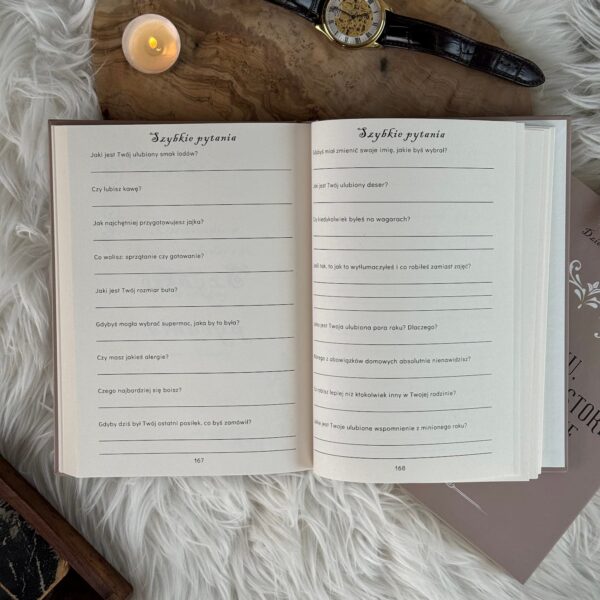 Szybkie pytania
Jaki jest Twój ulubiony smak lodów?
Czy lubisz kawę?
Jak najchętniej przygotowujesz jajka?
Co wolisz: sprzątanie czy gotowanie?
Jaki jest Twój rozmiar buta?
Gdybyś mogła wybrać supermoc, jaka by to była?
Czy masz jakieś alergie?
Czego najbardziej się boisz?
Gdyby dziś był Twój ostatni posiłek, co byś zamówił?
167
Szybkie pytania
Gdybyś miał zmienić swoje imię, jakie byś wybrał?
Jaki jest Twój ulubiony deser?
Czy kiedykolwiek byłeś na wagarach?
Jeśli tak, to jak to wytłumaczyłeś i co robiłeś zamiast zajęć?
jest Twoja ulubiona pora roku? Dlaczego?
z obowiązków domowych absolutnie nienawidzisz?
robisz lepiej niż ktokolwiek inny w Twojej rodzinie?
jest Twoje ulubione wspomnienie z minionego roku?
168